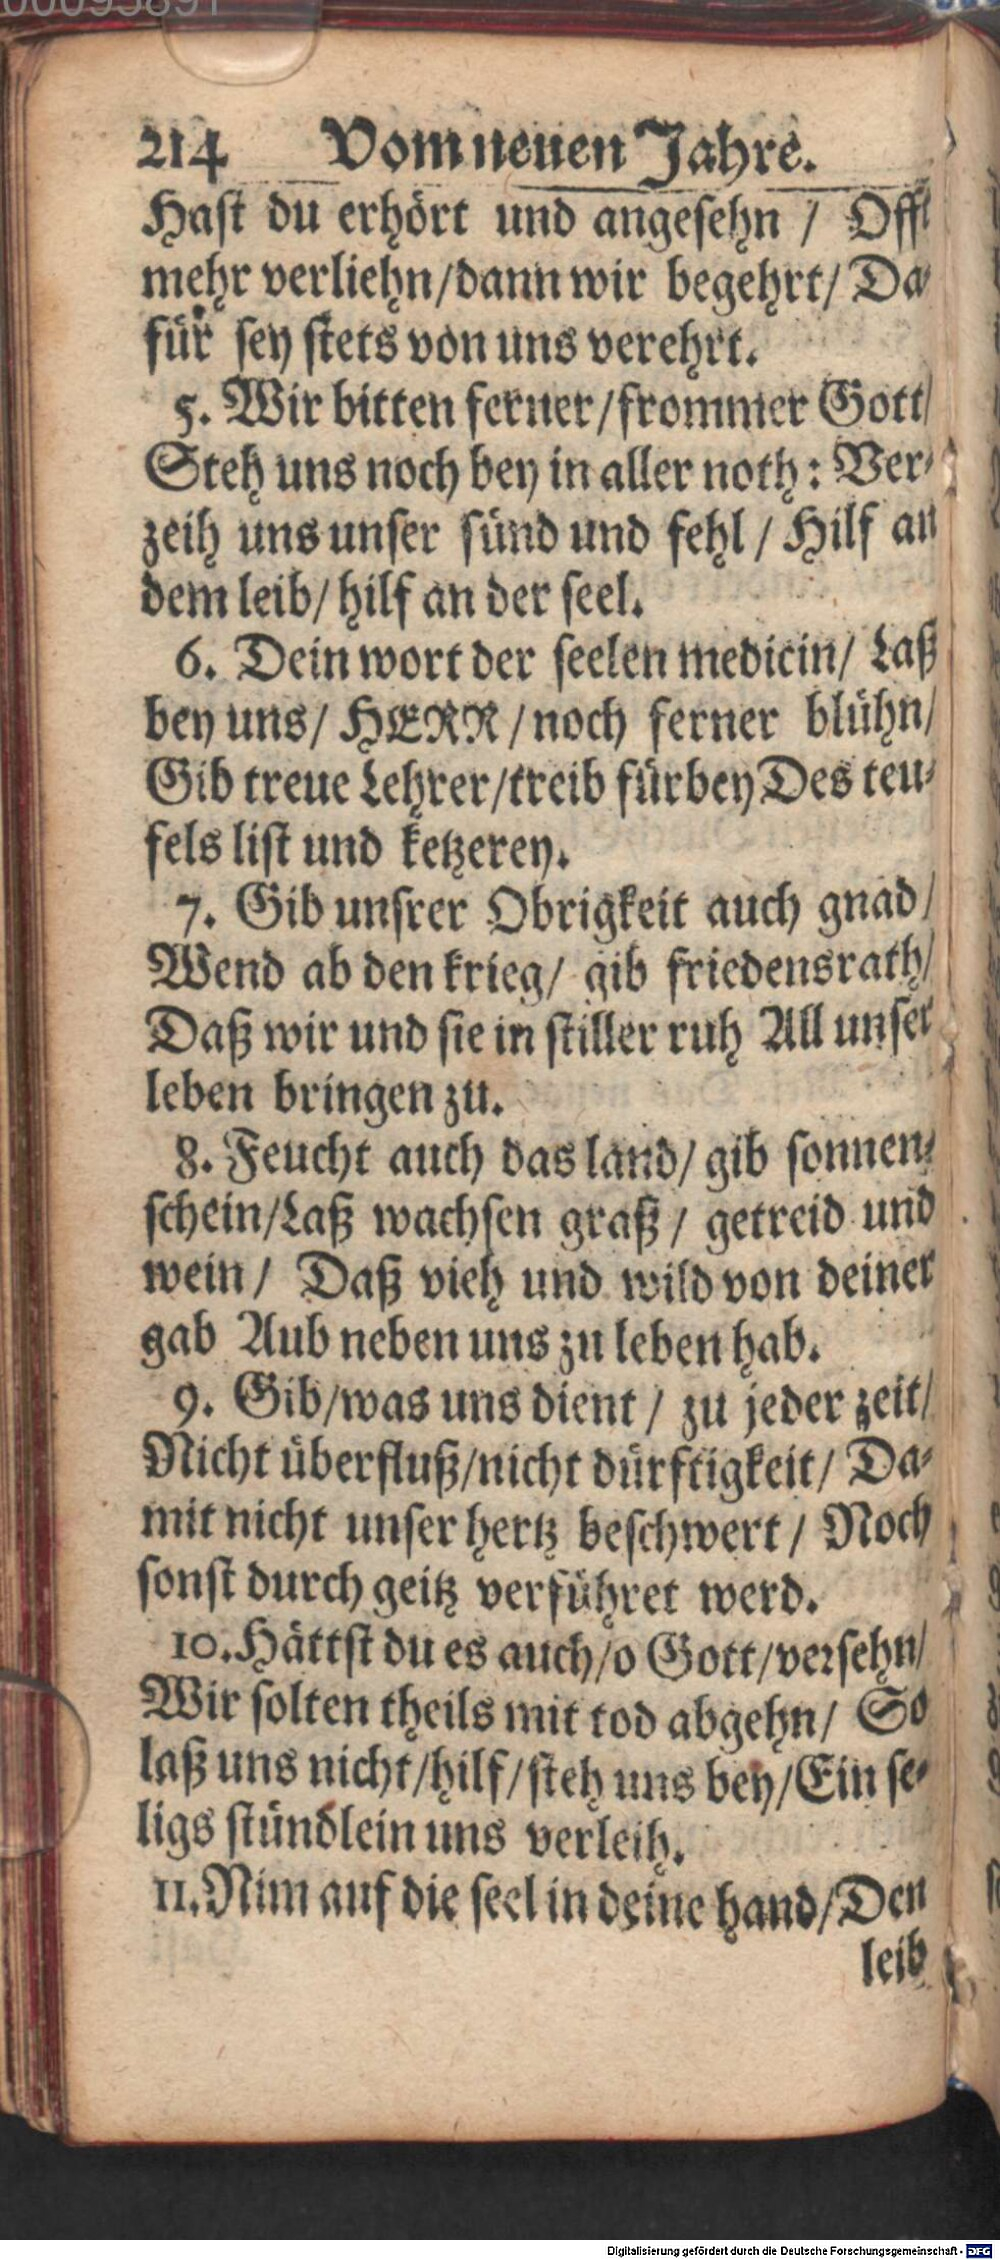 00095891
214 Vom neuen Jahre.
Hast du erhört und angesehn / Offt
mehr verliehn/dann wir begehrt/ Da-
für sey stets von uns verehrt.
5. Wir bitten ferner/frommer Gott/
Steh uns noch bey in aller noth: Ver-
zeih uns unser sünd und fehl / Hilf an
dem leib/ hilf an der seel.
6. Dein wort der seelen medicin/ Laß
bey uns/ HERR / noch ferner blühn/
Gib treue Lehrer/treib fürbey Des teu-
fels list und ketzerey.
7. Gib unsrer Obrigkeit auch gnad/
Wend ab den krieg/ gib friedensrath/
Daß wir und sie in stiller ruh All unser
leben bringen zu.
8. Feucht auch das land/ gib sonnen-
schein/Laß wachsen graß / getreid und
wein / Daß vieh und wild von deiner
gab Aub neben uns zu leben hab.
9. Gib/was uns dient / zu jeder zeit/
Nicht überfluß/nicht dürftigkeit/ Da-
mit nicht unser hertz beschwert / Noch
sonst durch geitz verführet werd.
10. Hättst du es auch/o Gott/versehn/
Wir solten theils mit tod abgehn/ So
laß uns nicht/hilf/steh uns bey/Ein se-
ligs stündlein uns verleih.
11. Nim auf die seel in deine hand/Den
leib
Digitalisierung gefördert durch die Deutsche Forschungsgemeinschaft - DFG